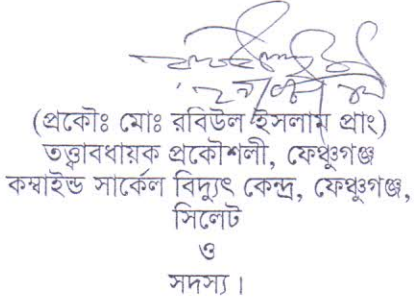 (প্রকৌঃ মোঃ রবিউল ইসলাম প্রাং)
তত্ত্বাবধায়ক প্রকৌশলী, ফেঞ্চুগঞ্জ
কম্বাইন্ড সার্কেল বিদ্যুৎ কেন্দ্র, ফেঞ্চুগঞ্জ,
সিলেট
ও
সদস্য।